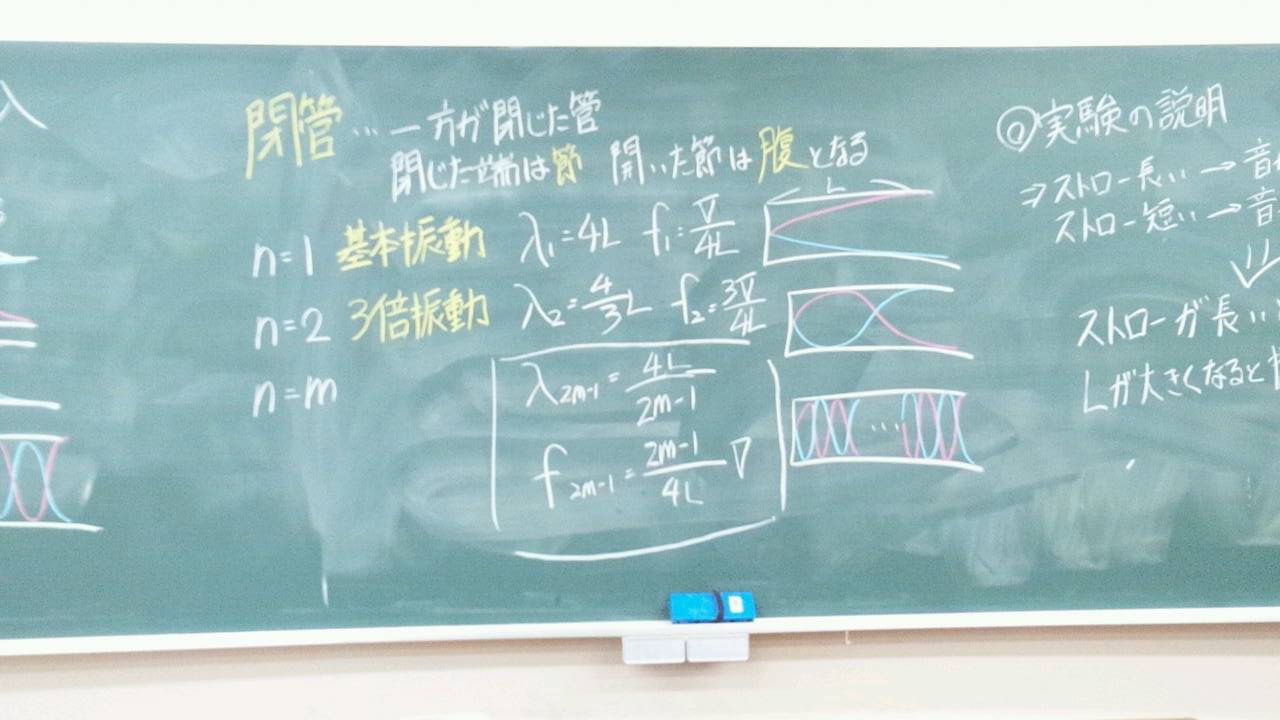 閉管…一方が閉じた管
閉じた端は節 開いた節は腹となる
L
n=1 基本振動 λ₁=4L f₁=V/4L
n=2 3倍振動 λ₂=4/3L f₂=3V/4L
n=m
λ₂ₘ₋₁=4L/2m-1
f₂ₘ₋₁=2m-1/4L V
....
◎実験の説明
⇒ストロー長い→音
ストロー短い→音
ストローが長い
Lが大きくなると